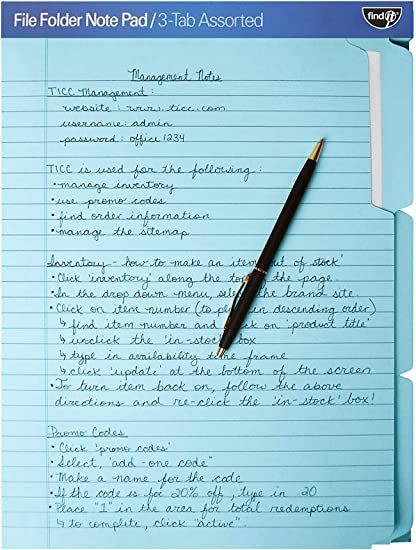 File Folder Note Pad / 3-Tab Assorted
find It
Management Notes
TICC Management:
website: www.ticc.com
username: admin
password: office1234
TICC is used for the following:
• manage inventory
• use promo codes
• find order information
• manage the sitemap
Inventory - how to make an item out of stock'
• Click 'inventory' along the top of the page
• In the drop down menu, select the brand site.
• Click on item number (to place in descending order)
↳ find item number and click on 'product title'
↳ unclick the 'in-stock' box
↳ type in availability time frame
↳ click 'update' at the bottom of the screen
• To turn item back on, follow the above
directions and re-click the 'in-stock' box!
Promo Codes
• Click 'promo codes'
• Select, "add-one code"
• Make a name for the code
• If the code is for 20% off, type in 20
• Place "1" in the area for total redemptions
↳ to complete, click "active".